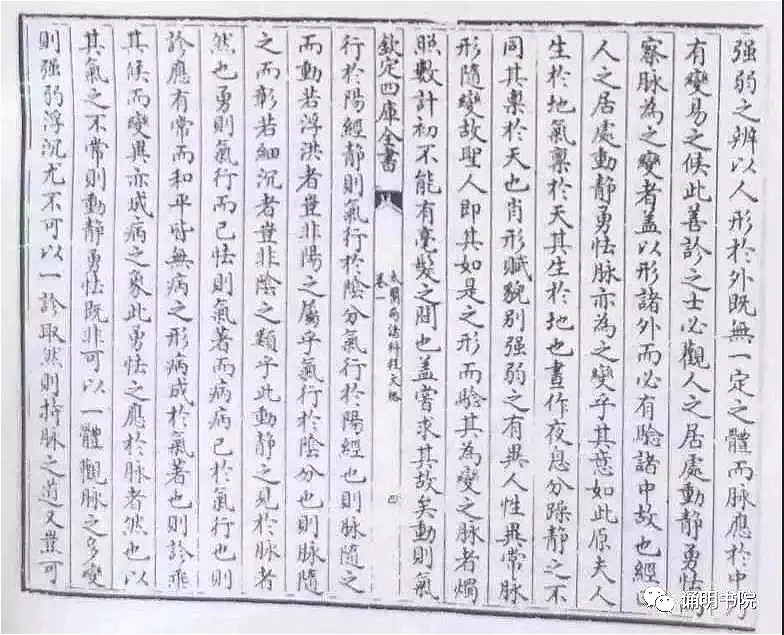 强弱之辨以人形於外既無一定之體而脉應於中
有變易之候此善診之士必觀人之居處動静勇怯
察脉為之變者盖以形諸外而必有驗諸中故也經
人之居處動静勇怯脉亦為之變乎其意如此原夫人
生於地氣禀於天其生於地也晝作夜息分躁静之不
同其禀於天也肖形賦貌别强弱之有異人性異常脉
形隨變故聖人即其如是之形而驗其為變之脉者燭
照數計初不能有毫髮之間也盖嘗求其故矣動則氣
欽定四庫全書
卷一
太醫局諸科程文格
四
行於陽經静則氣行於陰分氣行於陽經也則脉隨之
而動若浮洪者豈非陽之屬乎氣行於陰分也則脉隨
之而彰若細沉者豈非陰之類乎此動静之見於脉者
然也勇則氣行而已怯則氣著而病病已於氣行也則
診應有常而和平皆無病之形病成於氣著也則診乖
其候而變異亦成病之象此勇怯之應於脉者然也以
其氣之不常則動静勇怯既非可以一體觀脉之多變
則强弱浮沉尤不可以一診取然則持脉之道又豈可
通明书院